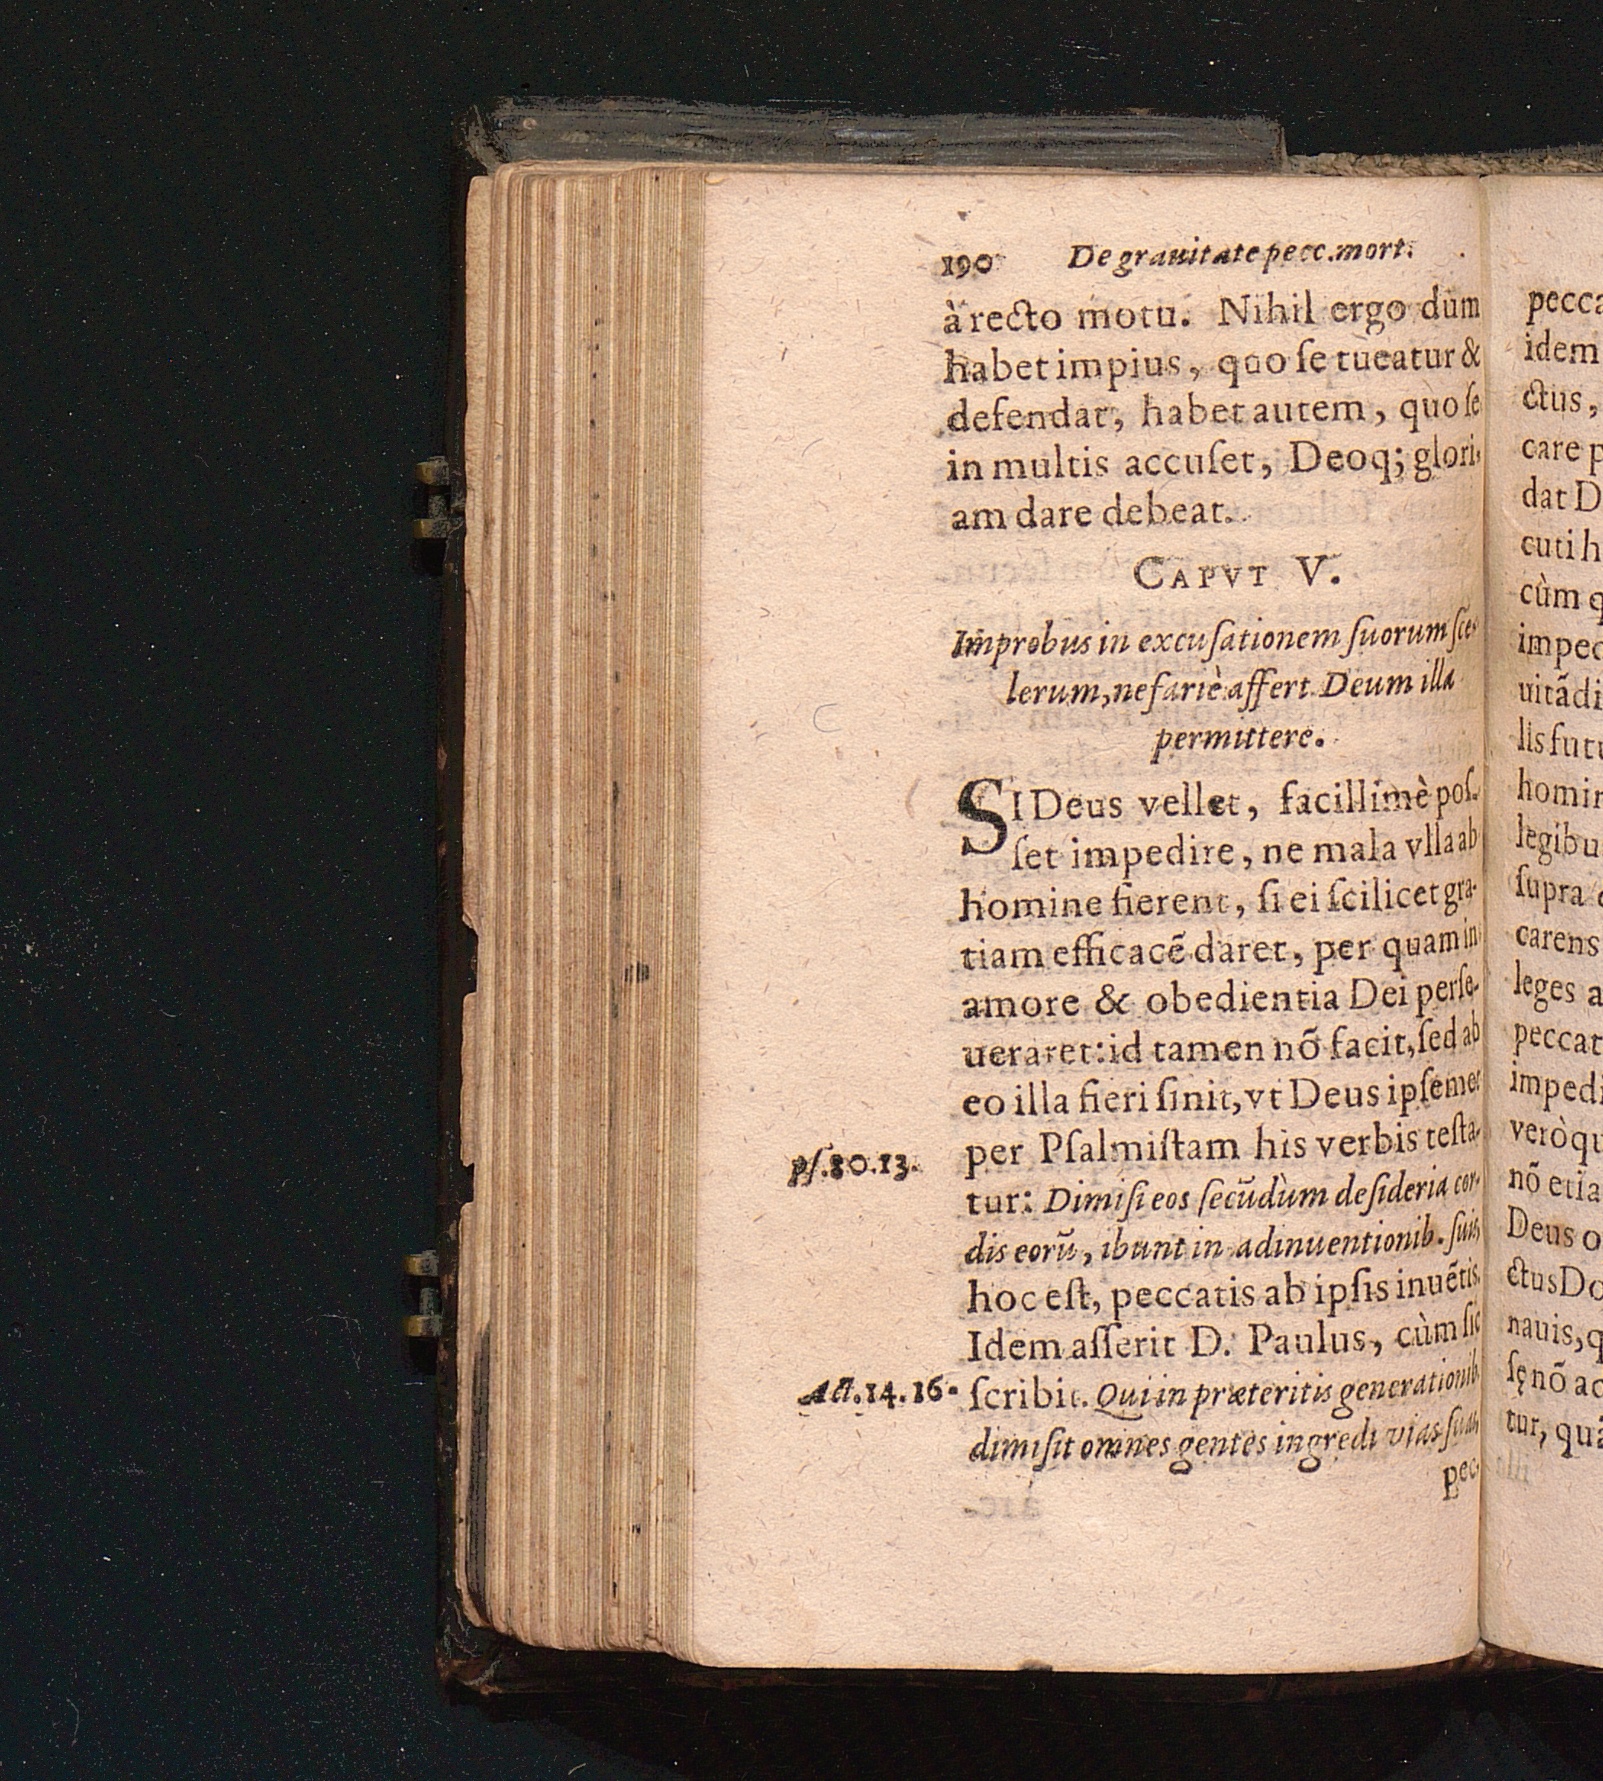 190 De grauitate pecc. mort.
à recto motu. Nihil ergo dum
habet impius, quo ſe tueatur &
defendat, habet autem, quo ſe
in multis accuſet, Deoq; glori-
am dare debeat.
CAPVT V.
Improbus in excuſationem ſuorum ſce-
lerum, nefariè affert Deum illa
permittere.
SI Deus vellet, facillimè poſ-
ſet impedire, ne mala vlla ab
homine fierent, ſi ei ſcilicet gra-
tiam efficacẽ daret, per quam in
amore & obedientia Dei perſe-
ueraret: id tamen nõ facit, ſed ab
eo illa fieri ſinit, vt Deus ipſemet
pſ.80.13. per Pſalmiſtam his verbis teſta-
tur: Dimiſi eos ſecũdùm deſideria cor-
dis eorũ, ibunt in adinuentionib. ſuis,
hoc eſt, peccatis ab ipſis inuẽtis.
Idem aſſerit D. Paulus, cùm ſic
Act.14.16. ſcribit. Qui in præteritis generationib.
dimiſit omnes gentes ingredi vias ſuas,
pec-
pecca
idem
ctus,
care p
dat D
cuti h
cùm q
impec
uitãdi
lis futu
homin
legibu
ſupra
carens
leges a
peccat
impedi
verò qu
nõ etia
Deus o
ctus Do
nauis, q
ſę nõ ac
tur, quã